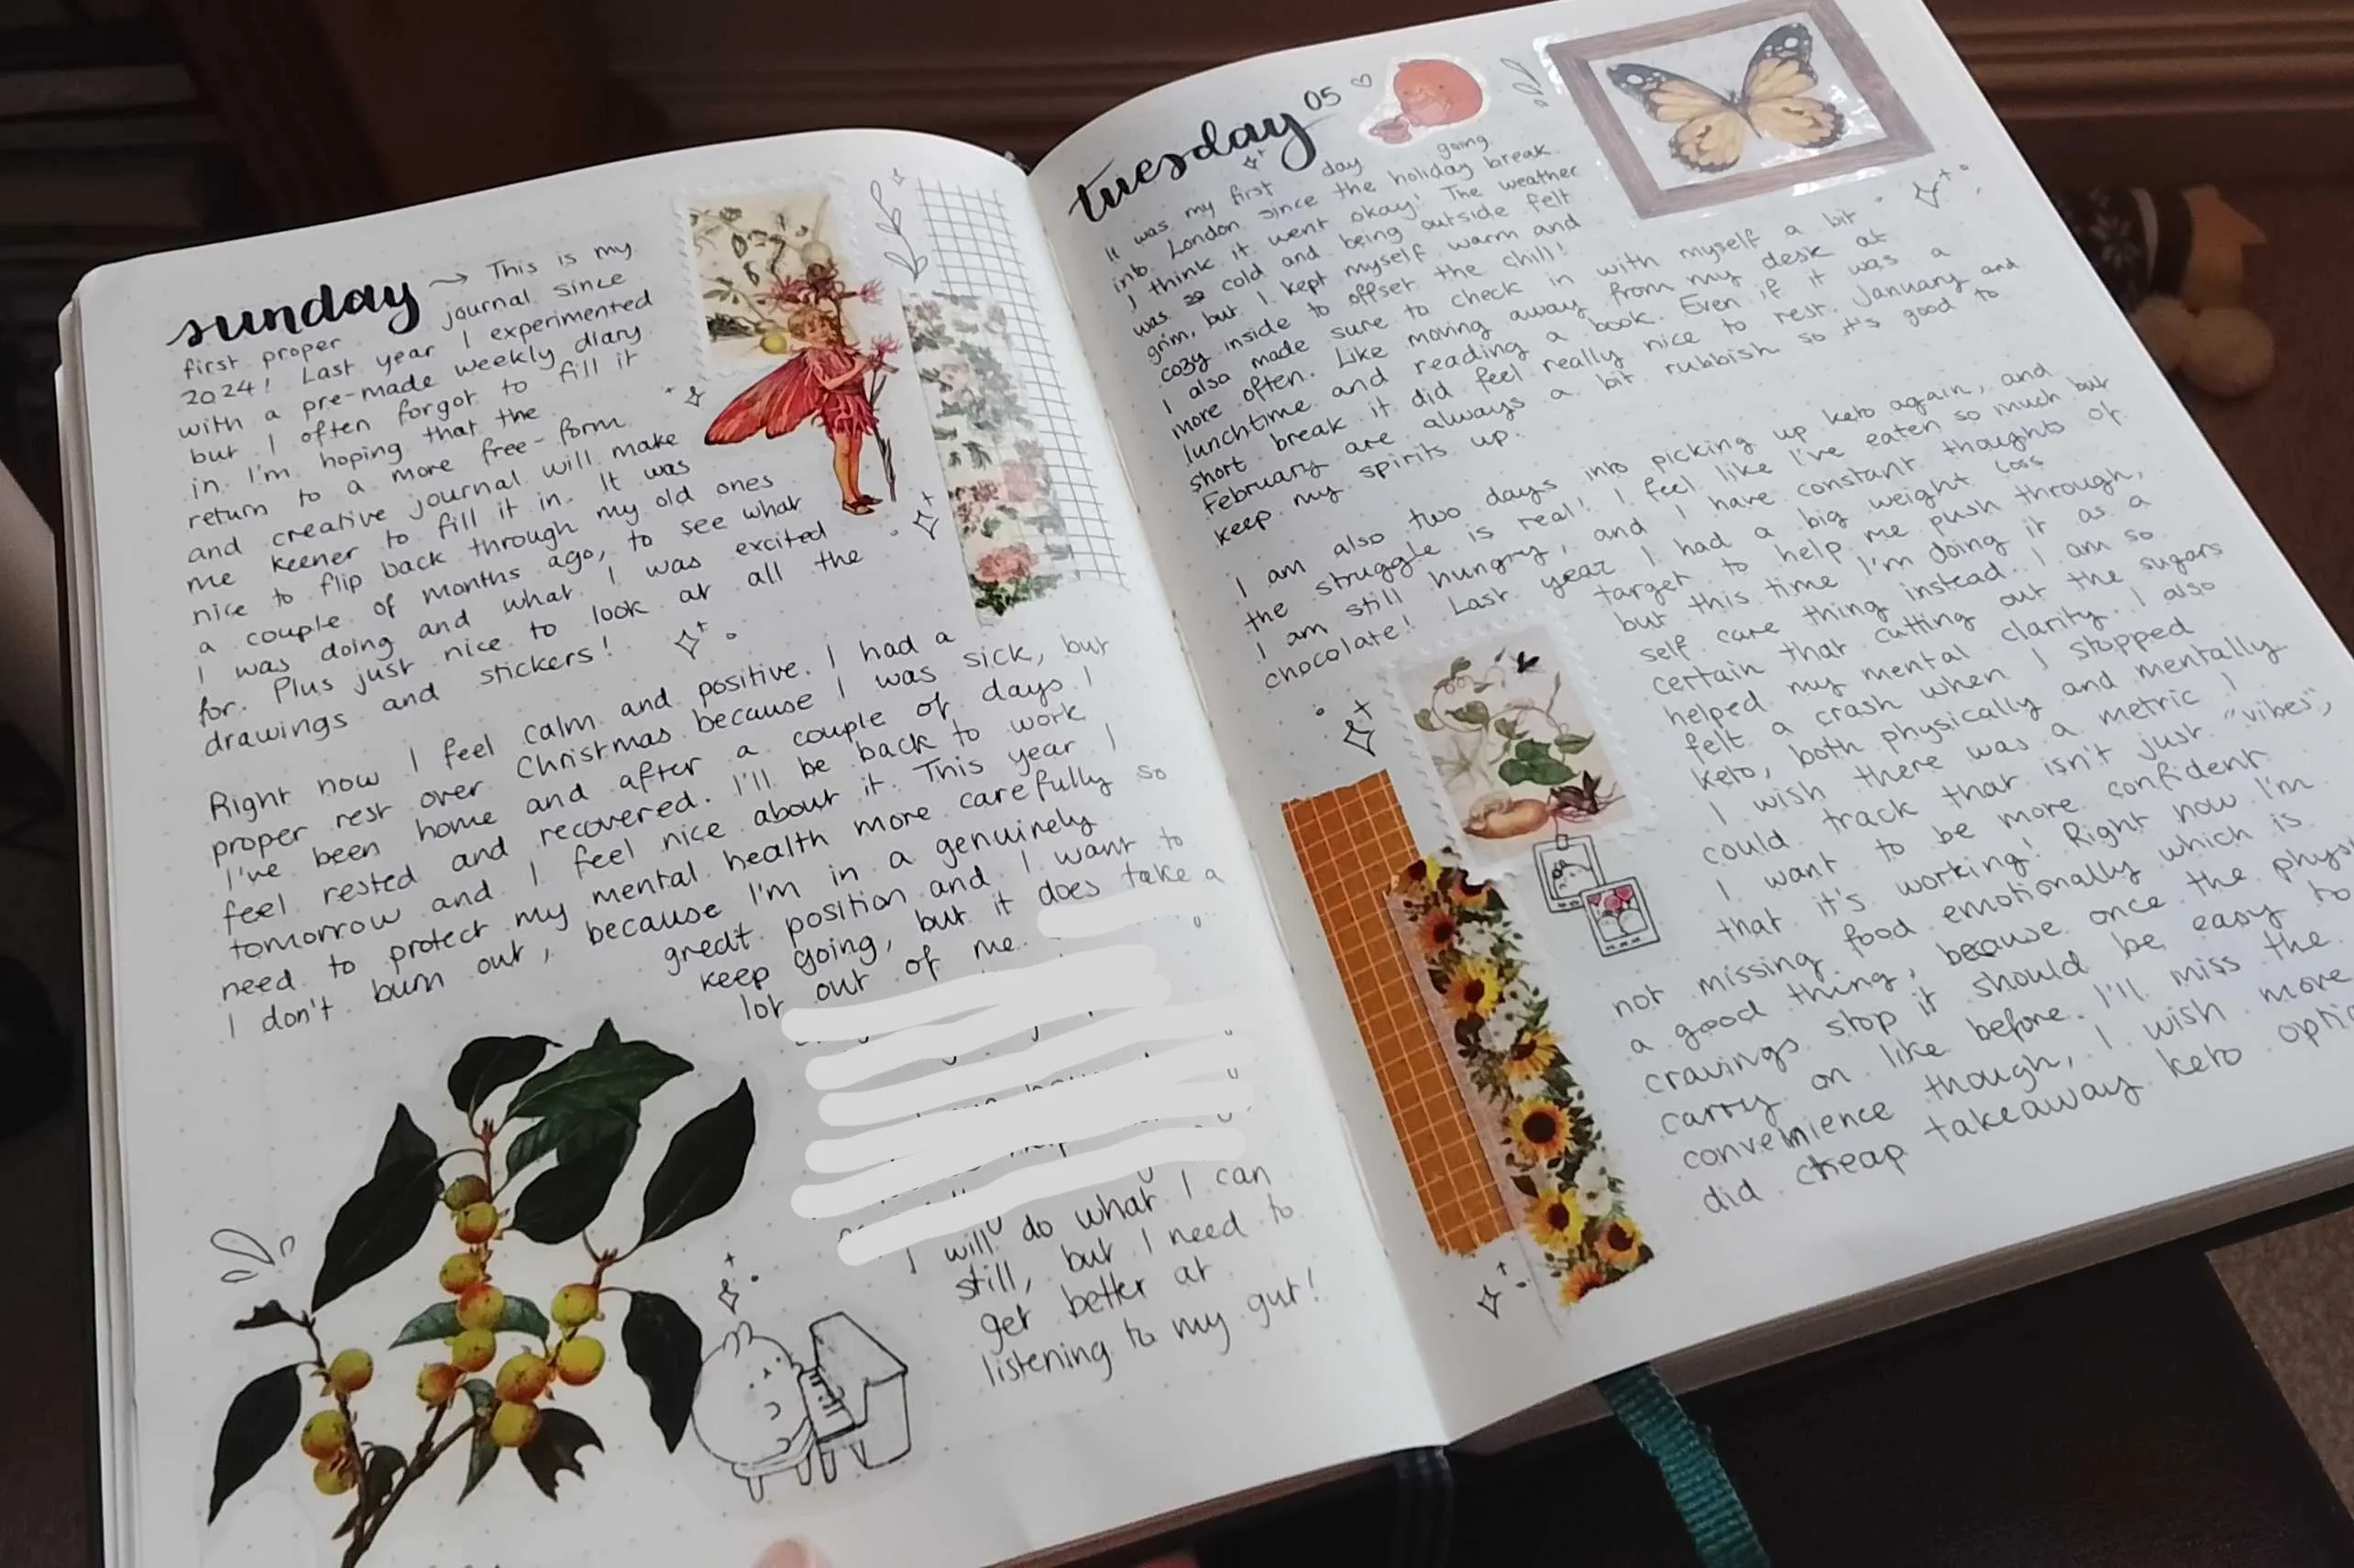 sunday → This is my
first proper journal since
2024! Last year I experimented
with a pre-made weekly diary
but I often forgot to fill it
in. I'm hoping that the
return to a more free-form
and creative journal will make
me keener to fill it in. It was
nice to flip back through my old ones
a couple of months ago, to see what
I was doing and what I was excited
for. Plus just nice to look at all the
drawings and stickers!
Right now I feel calm and positive. I had a
proper rest over Christmas because I was sick, but
I've been home and after a couple of days I
feel rested and recovered. I'll be back to work
tomorrow and I feel nice about it. This year I
need to protect my mental health more carefully so
I don't burn out, because I'm in a genuinely
great position and I want to
keep going, but it does take a
lot out of me
I will do what I can
still, but I need to
get better at
listening to my gut!
tuesday 05
It was my first day going
into London since the holiday break
I think it went okay! The weather
was so cold and being outside felt
grim, but I kept myself warm and
cozy inside to offset the chill!
I also made sure to check in with myself a bit
more often. Like moving away from my desk at
lunchtime and reading a book. Even if it was a
short break it did feel really nice to rest. January and
February are always a bit rubbish so it's good to
keep my spirits up.
I am also two days into picking up keto again, and
the struggle is real! I feel like I've eaten so much but
I am still hungry, and I have constant thoughts of
chocolate! Last year I had a big weight loss
target to help me push through,
but this time I'm doing it as a
self care thing instead. I am so
certain that cutting out the sugars
helped my mental clarity. I also
felt a crash when I stopped
keto, both physically and mentally
I wish there was a metric I
could track that isn't just "vibes",
I want to be more confident
that it's working! Right now I'm
not missing food emotionally which is
a good thing, because once the
cravings stop it should be easy to
carry on like before. I'll miss the
convenience though, I wish more
did cheap takeaway keto